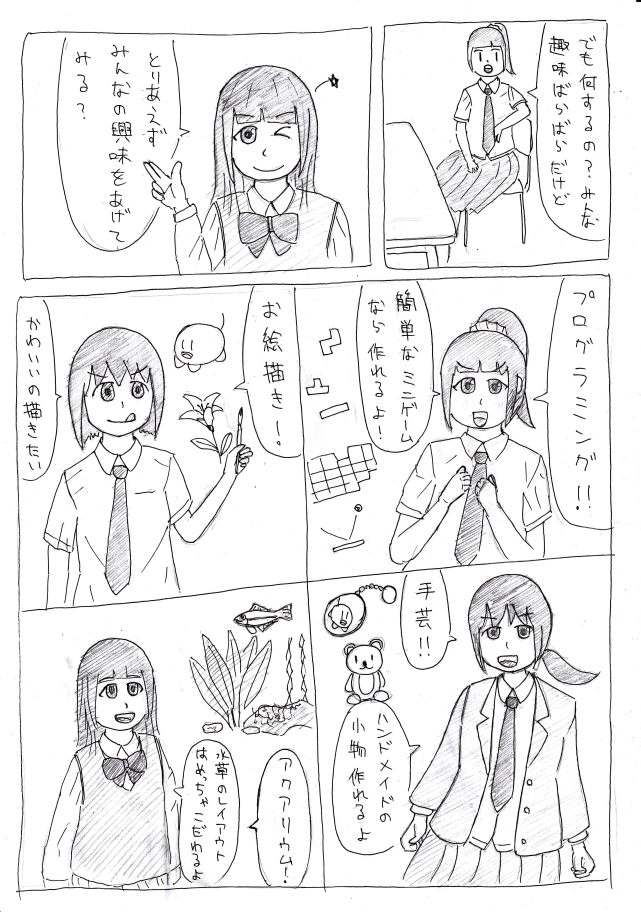 でも何するの？みんな
趣味ばらばらだけど
とりあえず
みんなの興味をあげて
みる？
プログラミング！！
簡単なミニゲーム
なら作れるよ！
お絵描きー。
かわいいの描きたい
手芸！！
ハンドメイドの
小物作れるよ
アクアリウム！
水草のレイアウト
はめっちゃこだわるよ